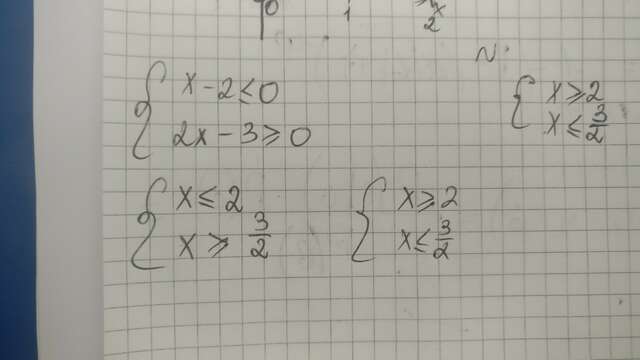 1
2
N:
{ x - 2 ≤ 0
2x - 3 ≥ 0
{ x ≥ 2
x ≤ 3/2
{ x ≤ 2
x ≥ 3/2
{ x ≥ 2
x ≤ 3/2